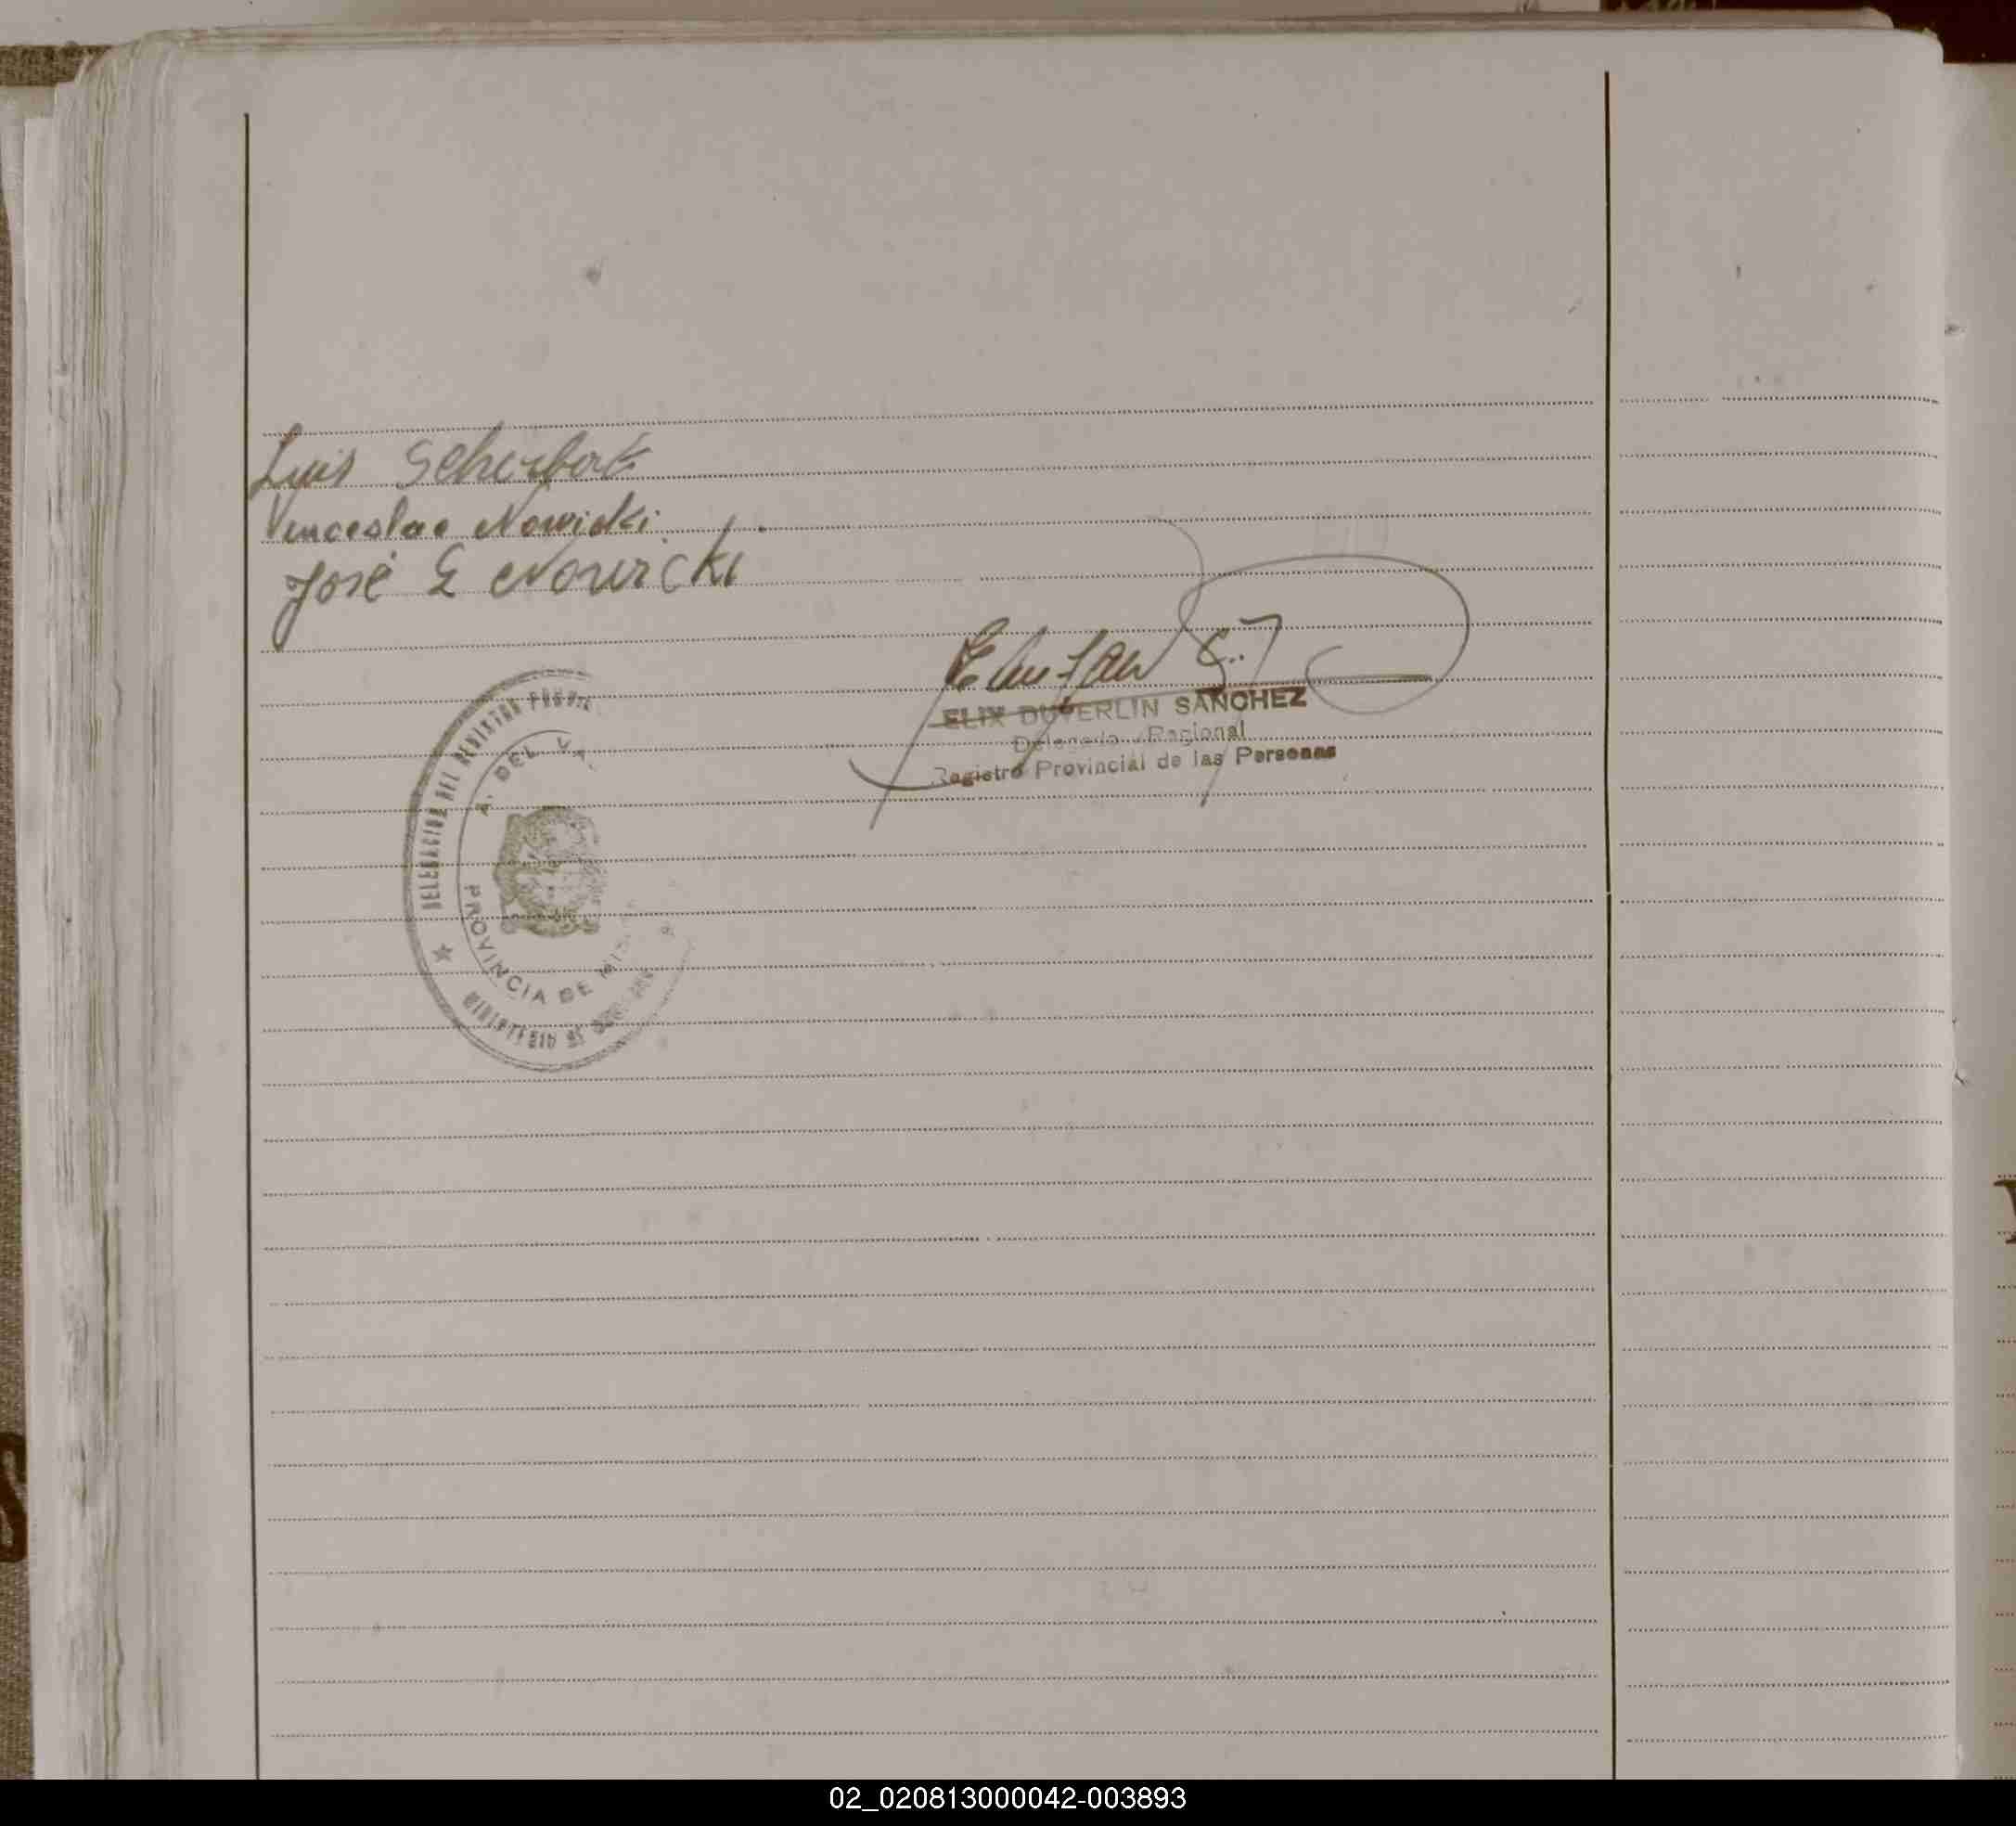 Luis
Venceslao Nowicki
José E Nowicki
ELIX DUVERLIN SANCHEZ
Delegado Regional
Registro Provincial de las Personas
DELEGACION DEL REGISTRO
A. DEL
PROVINCIA DE
MINISTERIO DE
02_020813000042-003893